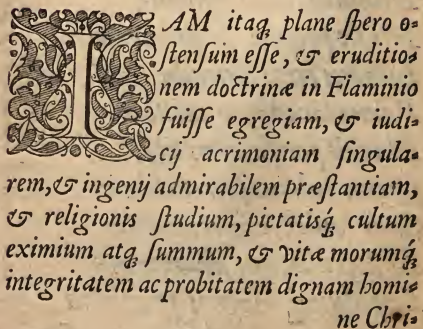 IAM itaq; plane ſpero o⸗
ſtenſum eſſe, & eruditio⸗
nem doctrinæ in Flaminio
fuiſſe egregiam, & iudi⸗
cij acrimoniam ſingula⸗
rem, & ingenij admirabilem præſtantiam,
& religionis ſtudium, pietatisq́; cultum
eximium atq; ſummum, & vitæ morumq́;
integritatem ac probitatem dignam homi⸗
ne Chri⸗